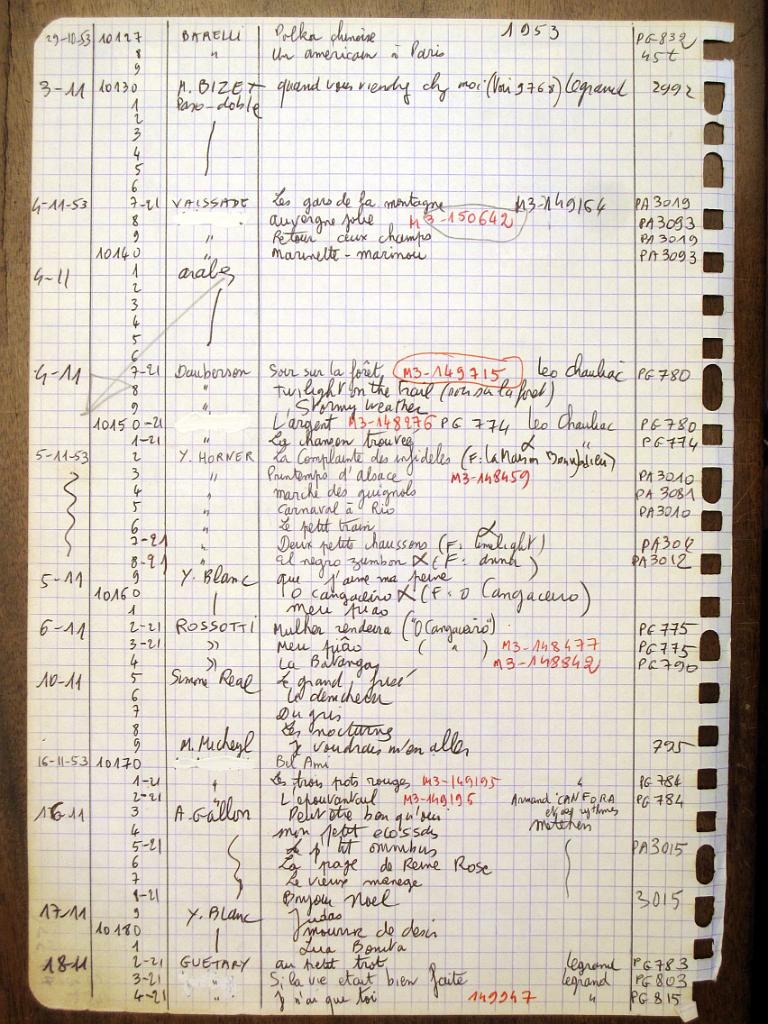 1953
29-10-53 10127 BARELLI Polka chinoise PG832
8 " Un americain à Paris 45t
9
3-11 10130 M. BIZET quand vous viendrez chez moi (Voir 9768) Legrand 2992
1 Paso-doble
2
3
4
5
6
4-11-53 7-21 VAISSADE Les gars de la montagne M3-149164 PA3019
8 auvergne jolie M3-150642 PA3093
9 " Retour aux champs PA3019
10140 " Marinette-marinou PA3093
4-11 1 arabes
2
3
4
5
6
4-11 7-21 Dauberson Soir sur la forêt M3-149715 Leo Chauliac PG780
8 " Twilight on the trail (soir sur la foret)
9 " Stormy weather
10150-21 L'argent M3-148276 PG 774 Leo Chauliac PG780
1-21 " La chanson trouvée " PG774
5-11-53 2 Y. HORNER La Complainte des infidèles (F: La Maison Bonnadieu)
3 " Printemps d'alsace M3-148459 PA3010
4 " marché des guignols PA3081
5 " Carnaval à Rio PA3010
6 " Le petit train
7-21 " Deux petits chaussons (F: limelight) PA3012
8-21 " El negro zumbon (F: anna) PA3012
5-11 9 Y. Blanc que j'aime ma peine
10160 O cangaceiro (F: O Cangaceiro)
1 Meu piao
6-11 2-21 ROSSOTTI Mulher rendeira ("O Cangaceiro") PG775
3-21 » Meu pião ( " ) M3-148477 PG775
4 » La Batanga M3-148842 PG790
10-11 5 Simone Real Le grand frisé
6 Le denicheur
7 Du gris
8 Les nocturnes
9 M. Micheyl Je voudrais m'en aller 795
16-11-53 10170 Bel Ami
1-21 " Les trois pots rouges M3-149195 " PG784
2-21 " L'epouvantail M3-149195 Armand CANFORA et ses rythmes PG784
16-11 3 A. Gallon Peut être bon qu'oui
4 mon petit ecossais
5-21 Le p'tit omnibus PA3015
6 La page de Reine Rose
7 Le vieux manège
8-21 Bonjour Noel 3015
17-11 9 Y. Blanc Judas
10180 mourir de desir
1 Lua Bonita
18-11 2-21 GUETARY au petit trot Legrand PG783
3-21 " Si la vie etait bien faite Legrand PG803
4-21 " Je n'ai que toi 149947 " PG815